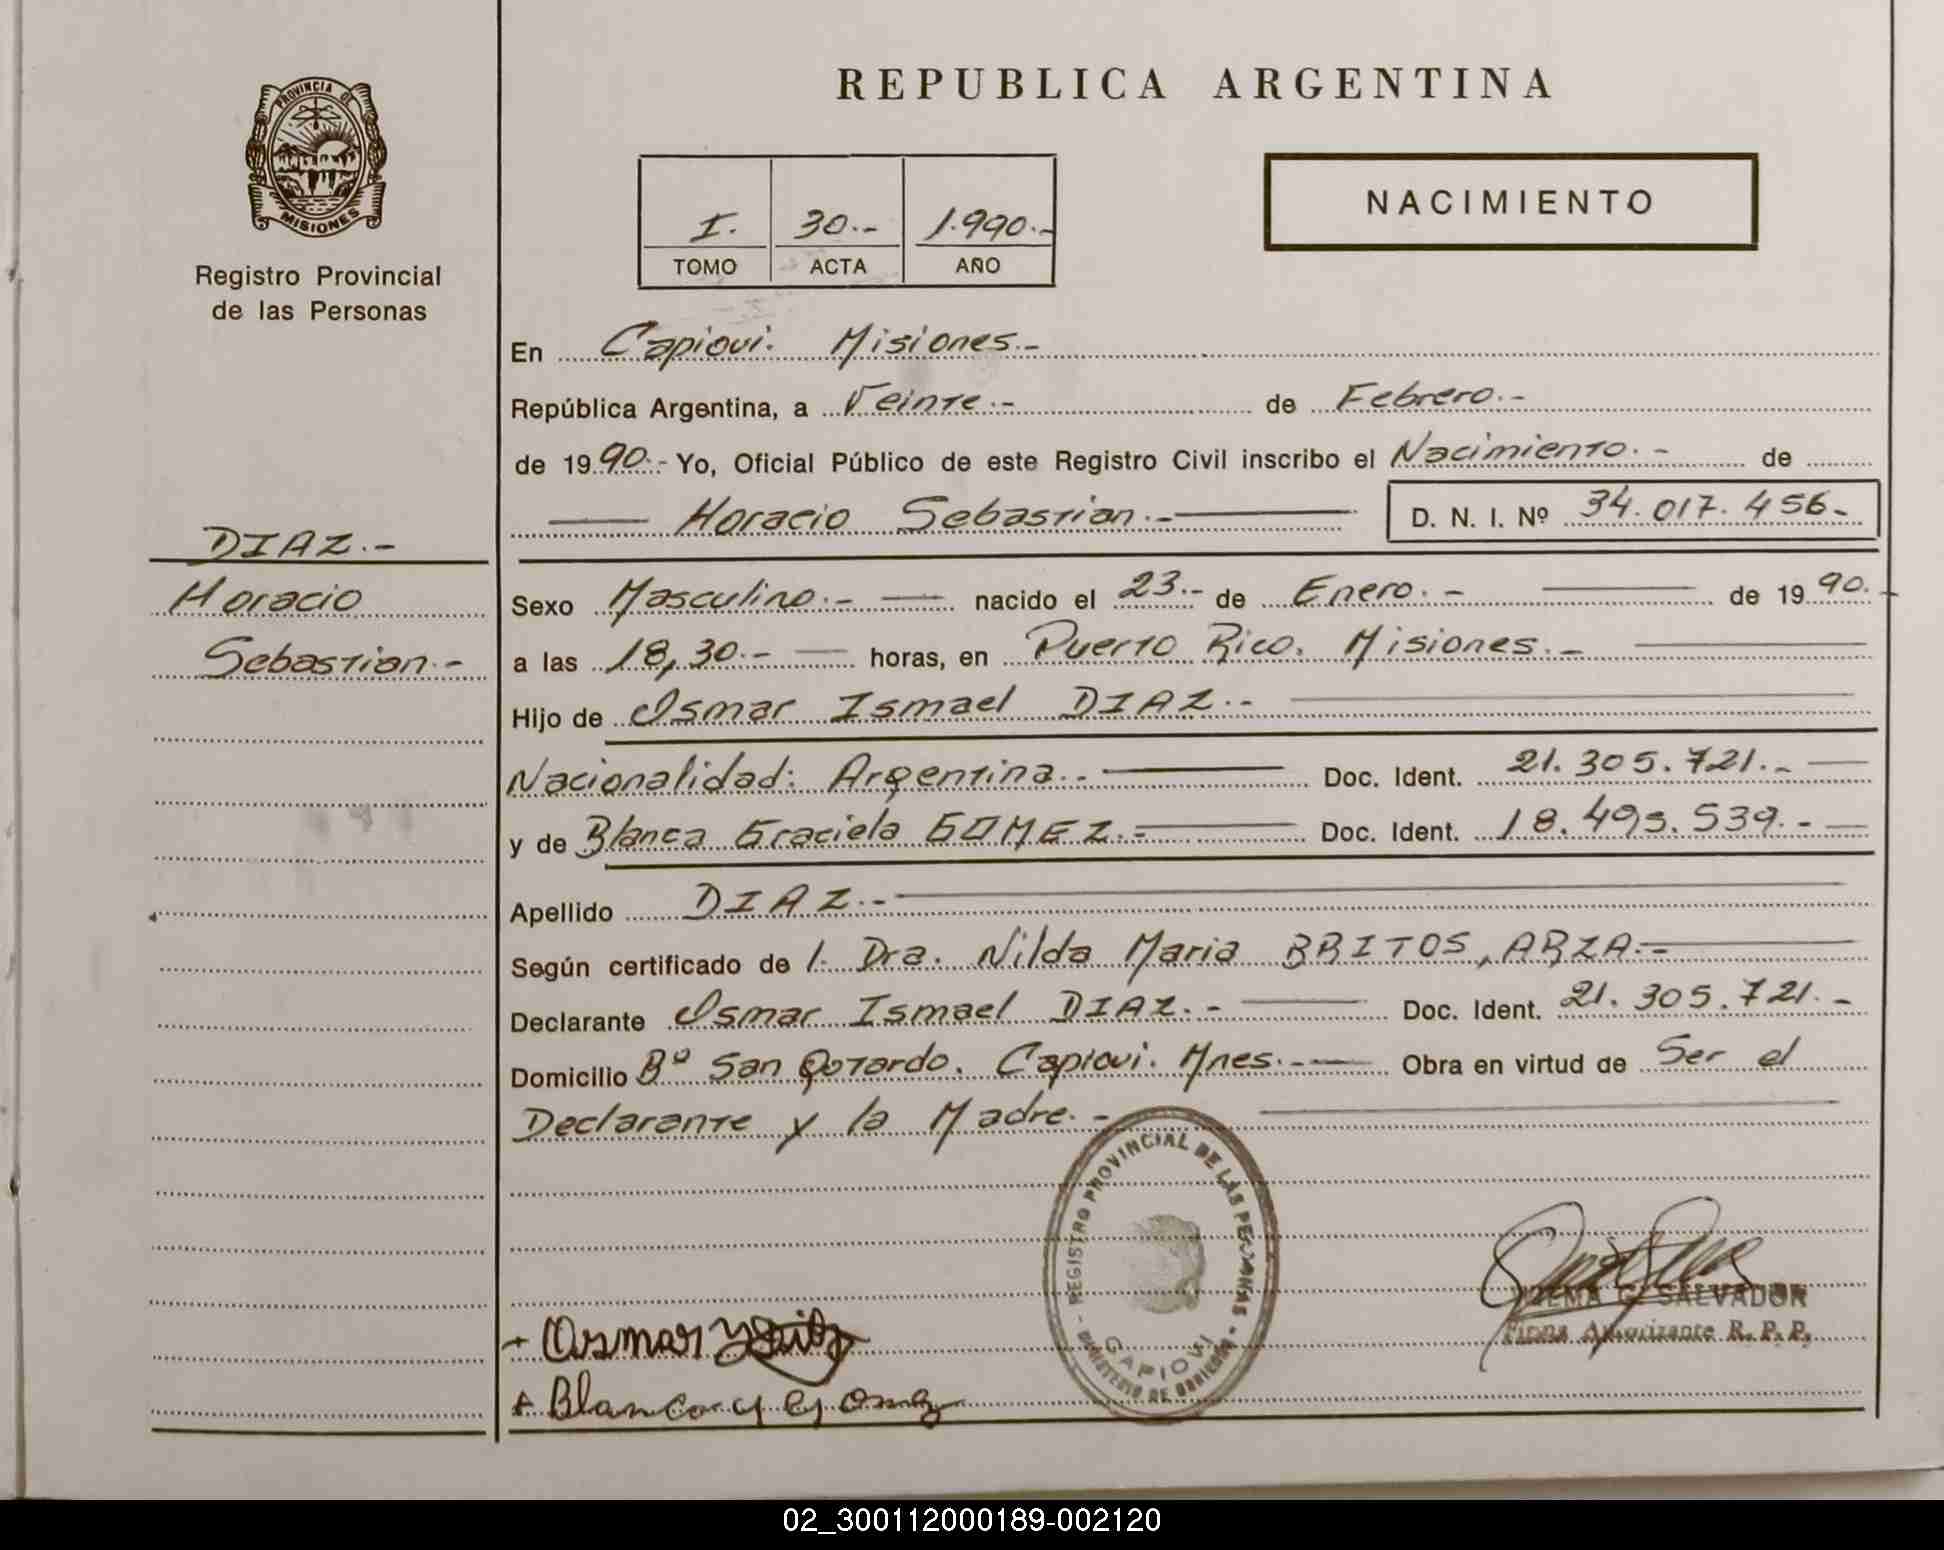 REPUBLICA ARGENTINA
PROVINCIA DE
MISIONES
Registro Provincial
de las Personas
I. 30.- 1.990.-
TOMO ACTA AÑO
NACIMIENTO
En Capiovi. Misiones.-
República Argentina, a Veinte.- de Febrero.-
de 19 90.- Yo, Oficial Público de este Registro Civil inscribo el Nacimiento.- de
Horacio Sebastian.- D. N. I. Nº 34.017.456.-
DIAZ.-
Horacio
Sebastian.-
Sexo Masculino.- nacido el 23.- de Enero.- de 19 90.-
a las 18,30.- horas, en Puerto Rico. Misiones.-
Hijo de Osmar Ismael DIAZ.-
Nacionalidad: Argentina.- Doc. Ident. 21.305.721.-
y de Blanca Graciela GOMEZ.- Doc. Ident. 18.493.539.-
Apellido DIAZ.-
Según certificado de l. Dra. Nilda Maria BRITOS, ARZA.-
Declarante Osmar Ismael DIAZ.- Doc. Ident. 21.305.721.-
Domicilio Bº San Capiovi. Mnes.- Obra en virtud de Ser el
Declarante y la Madre.-
REGISTRO PROVINCIAL DE LAS PERSONAS
CAPIOVI
MINISTERIO DE GOBIERNO
G. SALVADOR
Firma Autorizante R. P. P.
Osmar
Blanca
02_300112000189-002120